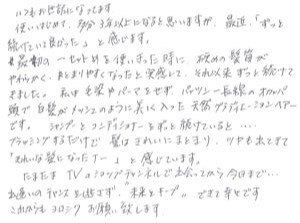 いつもお世話になってます
使いはじめて、多分3年以上になると思いますが、最近、「ずっと
続けていて良かった」と感じます。
最初の一セットめを使い切った時に、硬めの髪質が
やわらかく、まとまりやすくなったと実感して、それ以来ずっと続けて
きました。私は毛染やパーマをせず、パッツン一直線のオカッパ
頭で白髪がメッシュのように美しく入った天然グラデーションヘアー
です。シャンプーとコンディショナーをずっと続けていると…
ブラッシングするだけで髪はきれいにまとまり、ツヤも出てきて
「きれいな髪になったナー」と感じています。
たまたまTVのショップチャンネルで出会ってから今日まで…
出逢いのチャンスを逃さず、"未来をキープ"できて幸せです
これからも お願い致します。